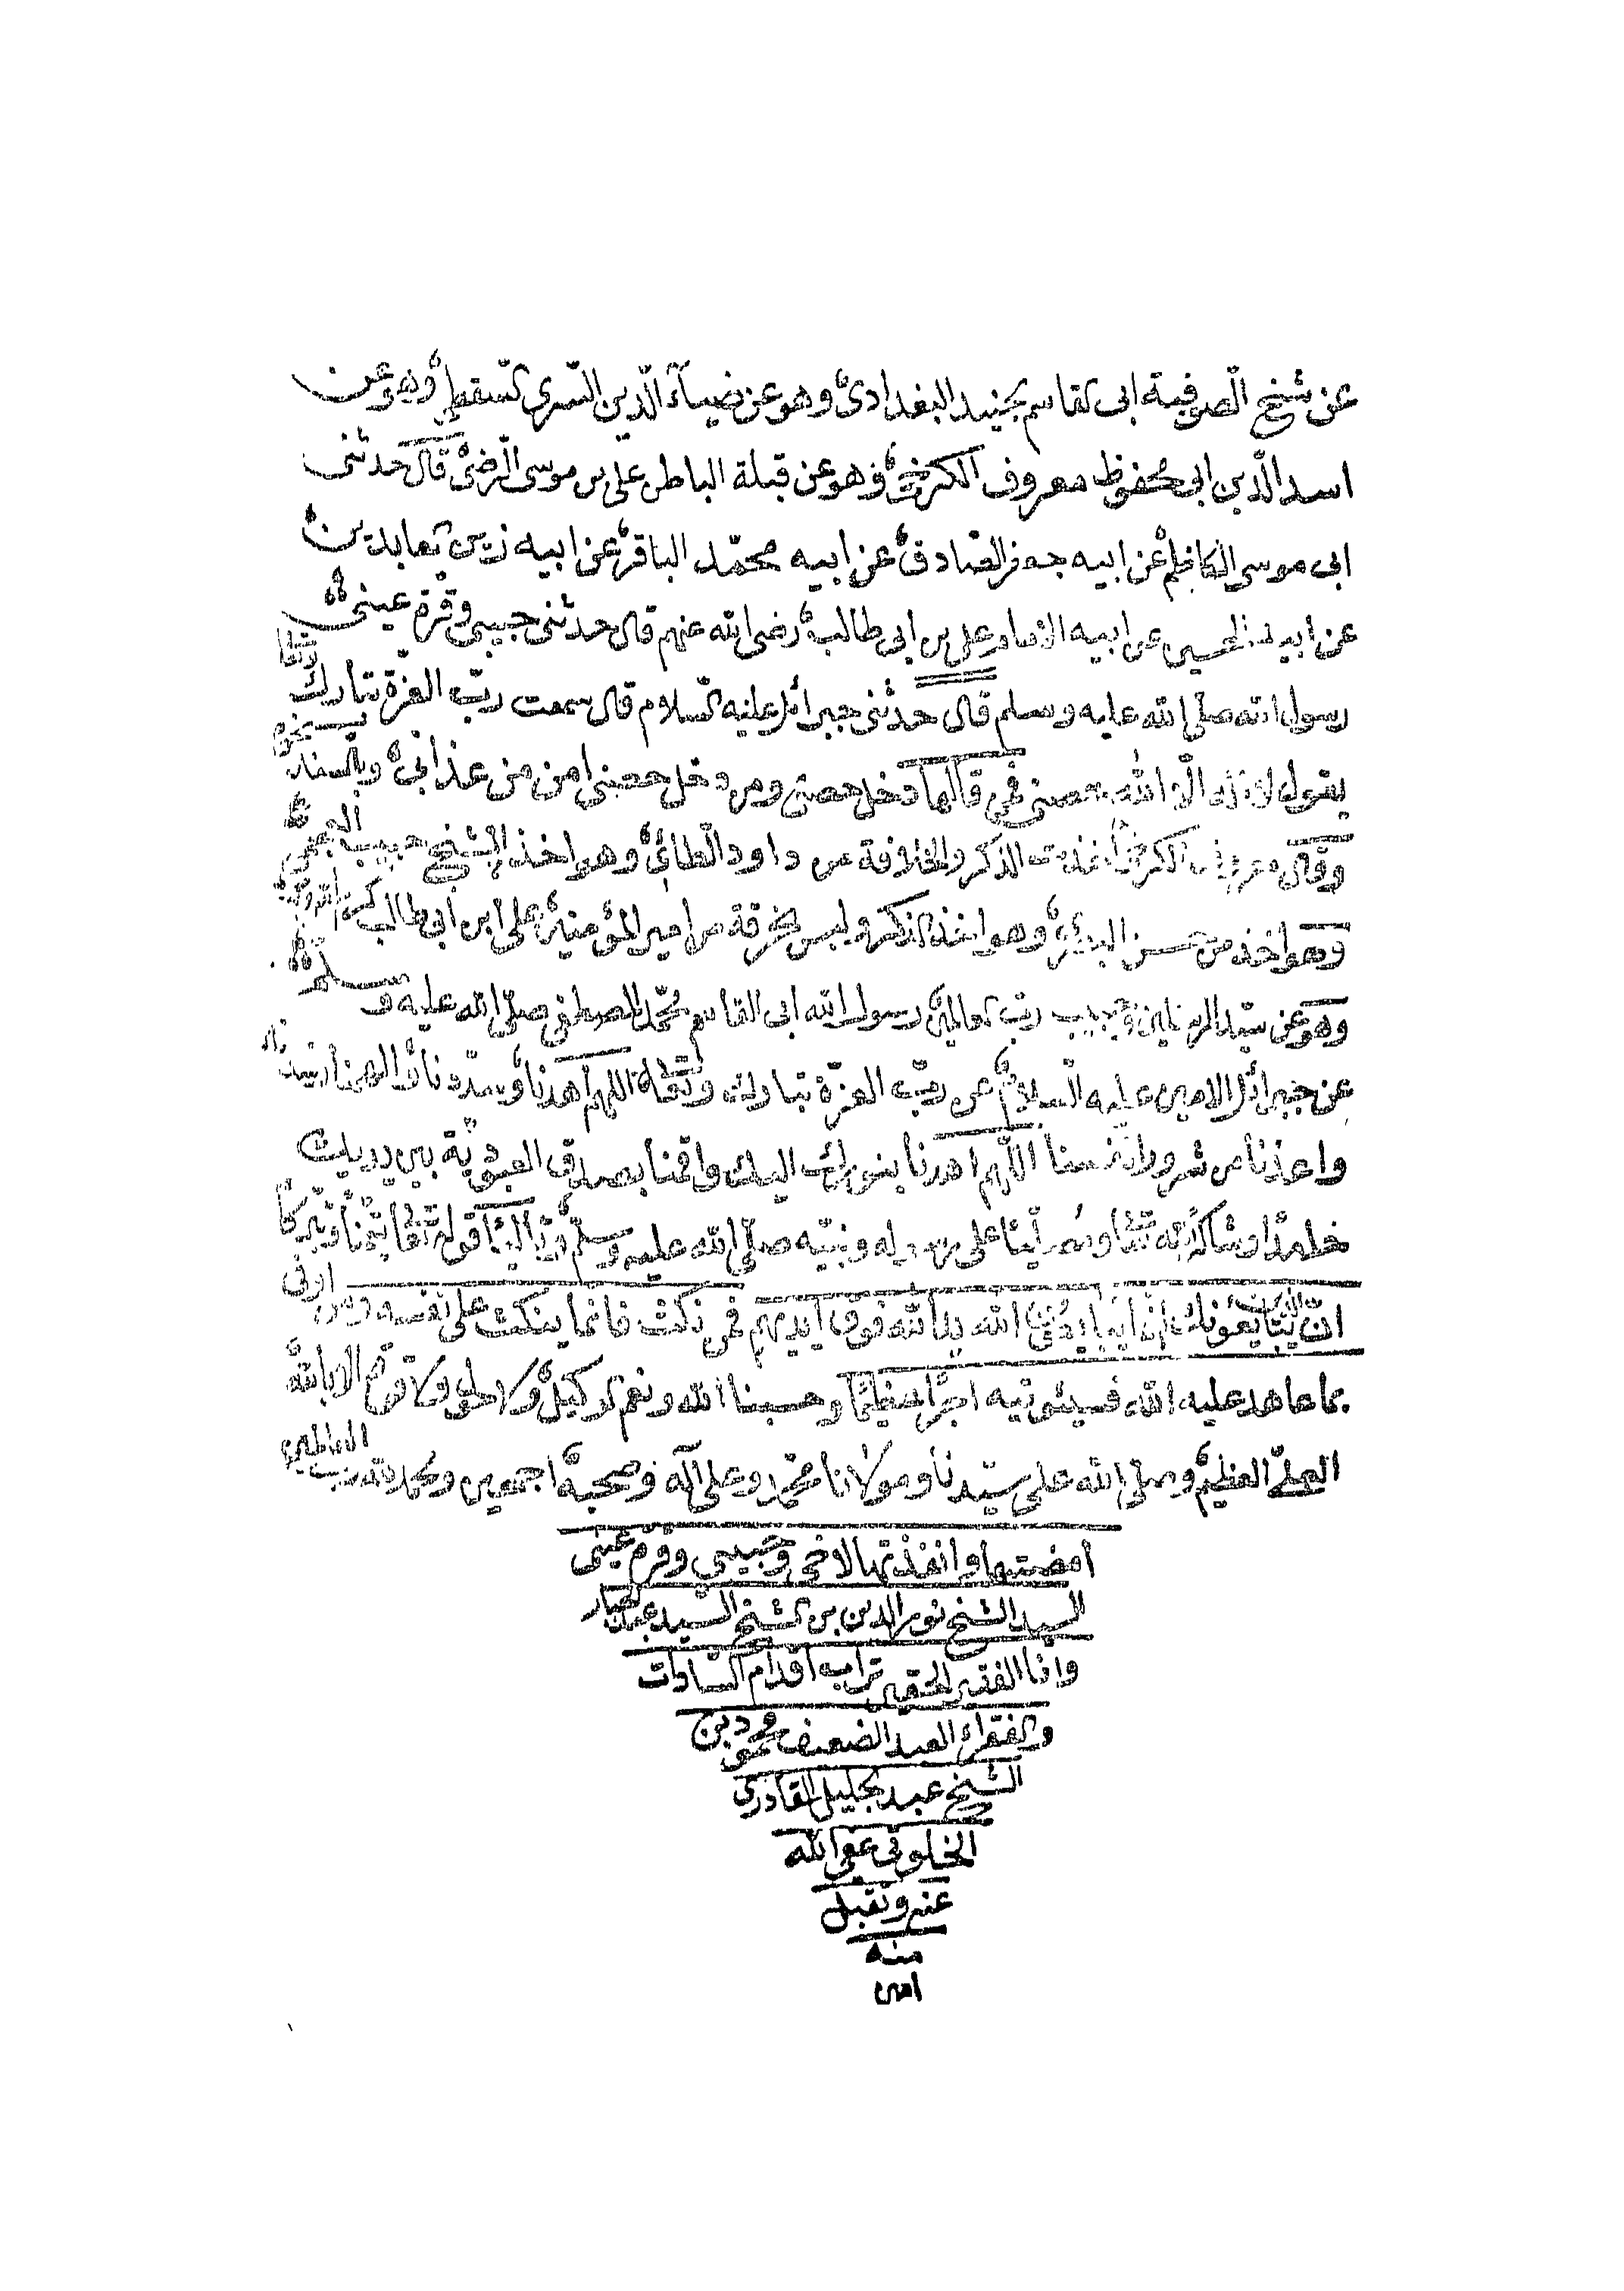 عن شيخ الصوفية ابى القاسم الجنيد البغدادى وهو عن ضياء الدين السرى السقطى وهو عن
اسد الدين ابى محفوظ معروف الكرخى وهو عن قبلة الباطن على بن موسى الرضى قال حدثنى
ابى موسى الكاظم عن ابيه جعفر الصادق عن ابيه محمد الباقر عن ابيه زين العابدين
عن ابيه الحسين عن ابيه الامام على بن ابى طالب رضى الله عنهم قال حدثنى حبيبى وقرة عينى
رسول الله صلى الله عليه وسلم قال حدثنى جبرائل عليه السلام قال سمعت رب العزة تبارك وتعالى
يقول لا اله الا الله حصنى فمن قالها دخل حصنى ومن دخل حصنى امن من عذابى
وقال معروف الكرخى اخذت الذكر والخلافة من داود الطائى وهو اخذ الشيخ حبيب العجمى
وهو اخذ من حسن البصرى وهو اخذ الذكر ولبس الخرقة من امير المؤمنين على ابن ابى طالب كرم الله وجهه
وهو عن سيد المرسلين وحبيب رب العالمين رسول الله ابى القاسم محمد المصطفى صلى الله عليه وسلم
عن جبرائل الامين عليه السلام عن رب العزة تبارك وتعالى اللهم اهدنا
واعذنا من شرور انفسنا اللهم اهدنا بنورك اليك واقمنا بصدق العبودية بين يديك
على رسوله ونبيه صلى الله عليه وسلم
ان الذين يبايعونك انما يبايعون الله يد الله فوق ايديهم فمن نكث فانما ينكث على نفسه ومن اوفى
بما عاهد عليه الله فسيئوتيه اجرا عظيما وحسبنا الله ونعم الوكيل ولا حول ولا قوة الا بالله
العلى العظيم وصلى الله على سيدنا ومولانا محمد وعلى آله وصحبه اجمعين والحمد لله رب العالمين
امضيتها وانفذتها لاخى وحبيبى وقرة عينى
السيد الشيخ نور الدين بن الشيخ السيد عبد الجبار
وانا الفقير الحقير تراب اقدام السادات
والفقراء العبد الضعيف محمود بن
الشيخ عبد الجليل القادرى
الخلوتى عفى الله
عنه وتقبل
منه
امين